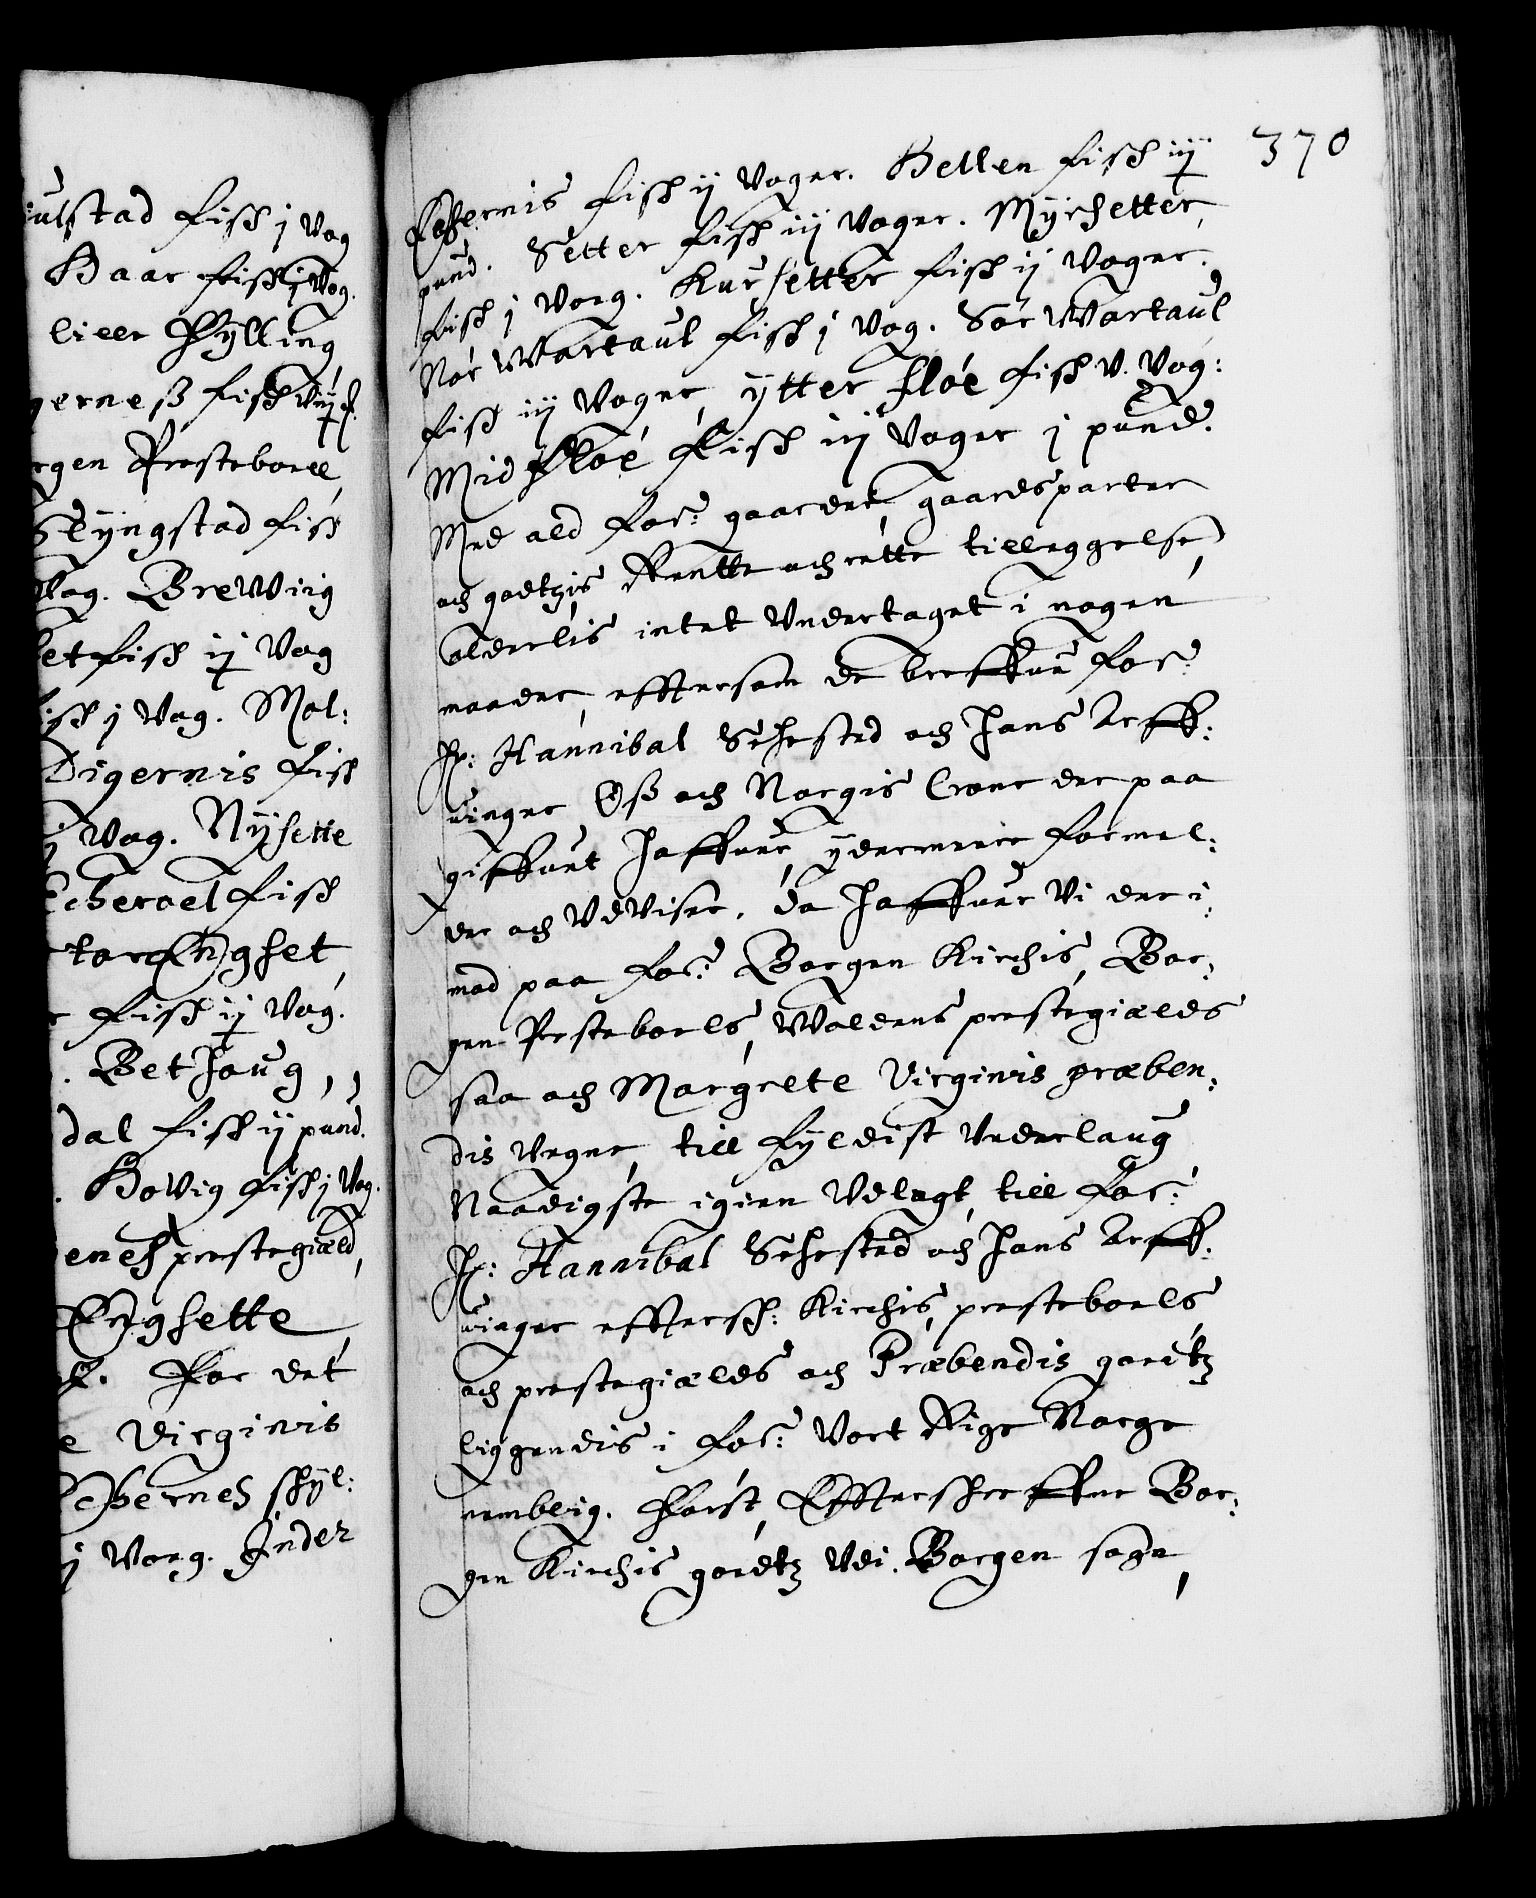 ulstad fisk j Vog
Haar fisk j Vog.
lille Fylling
gerneß fisk
rgen Presteboell
Slyngstad fisk
Vog. Brewiig
et fisk ij Vog
isk j Vog. Mol:
Digernis fisk
j Vog. Nysette
Echeroel fisk
fisk ij Vog.
. Bethaug,
dal fisk ij pund.
. Hovig fisk j Vog.
enes prestegiæld,
Engsette
For det
e Virginis
bernes skyl:
j Voeg. Inder
370
fisk ij Voger. Hellen fisk iij
pund. Setter fisk iij Voger. Myrsetter
fisk j Voeg. Kursetter fisk ij Voger.
Nór Wartaul fisk j Vog. Sór Wartaul
fisk iij Voger, ytter flóe fisk v. Vog:
Mid flóe fisk iij Voger j pund.
Med ald for: gaarder, gaardsparter
och godtzis Rentte och rette tilleggelse
alderlis intet Undertaget i nogen
maader, efftersom de breffue for:
Hr: Hannibal Sehested och Hans Arff:
vinger, Oß och Norgis Crone der paa
giffuet haffuer, ydermeere formel:
der och Udviser, da haffuer Vi der i:
mod paa for: Borgen Kirchis, Bor:
gen Presteboels, Waldens prestegiælds
saa och Margrete Virginis præben:
dis Vegne, till fyldist Vederlaug
Naadigste igien Udlagt, till for:
Hr: Hannibal Sehested och Hans Arff:
vinger effterss: Kirchis, presteboels
och prestegiælds och Præbendis goedtz
liggendis i for: Vort Rige Norge
nemblig. Først, Effterskreffne Bor:
gen Kirchis goedtz Udi Borgen sogn,